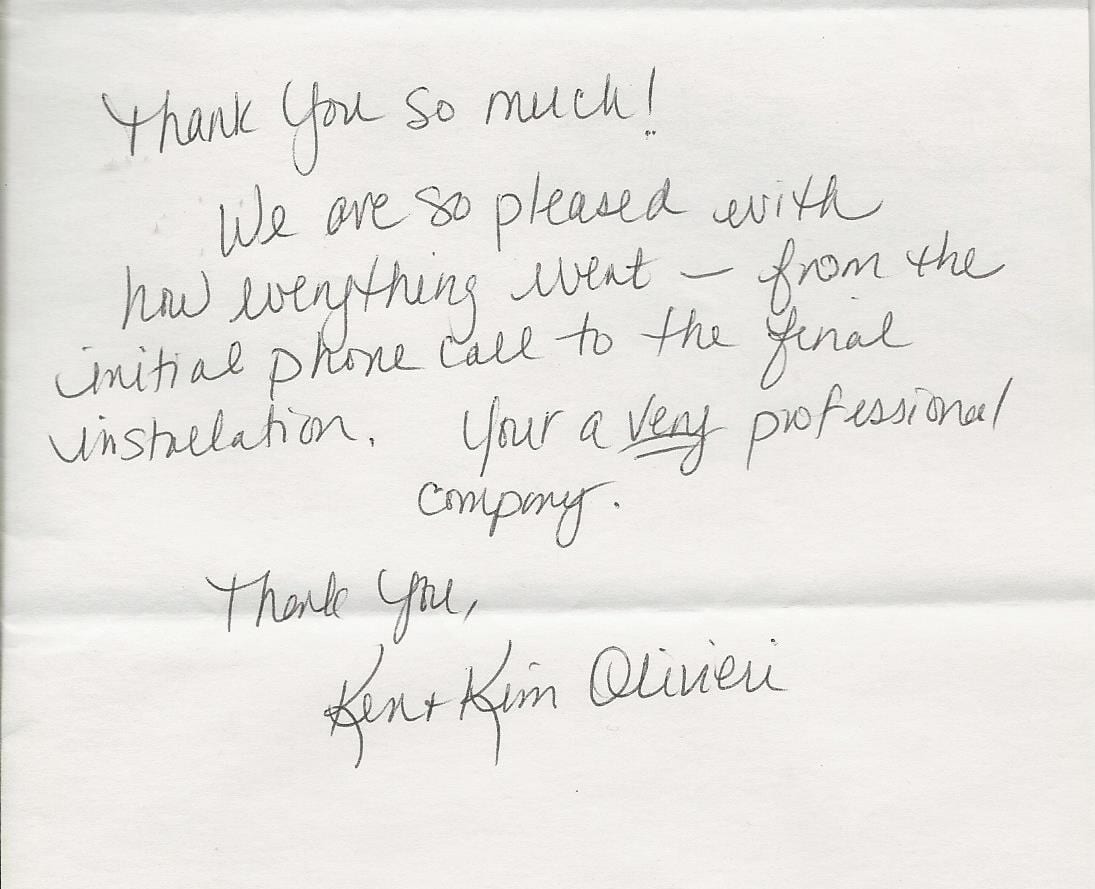 Thank You so much!
We are so pleased with
how everything went – from the
initial phone call to the final
installation. Your a very professional
company.
Thank You,
Ken + Kim Olivieri